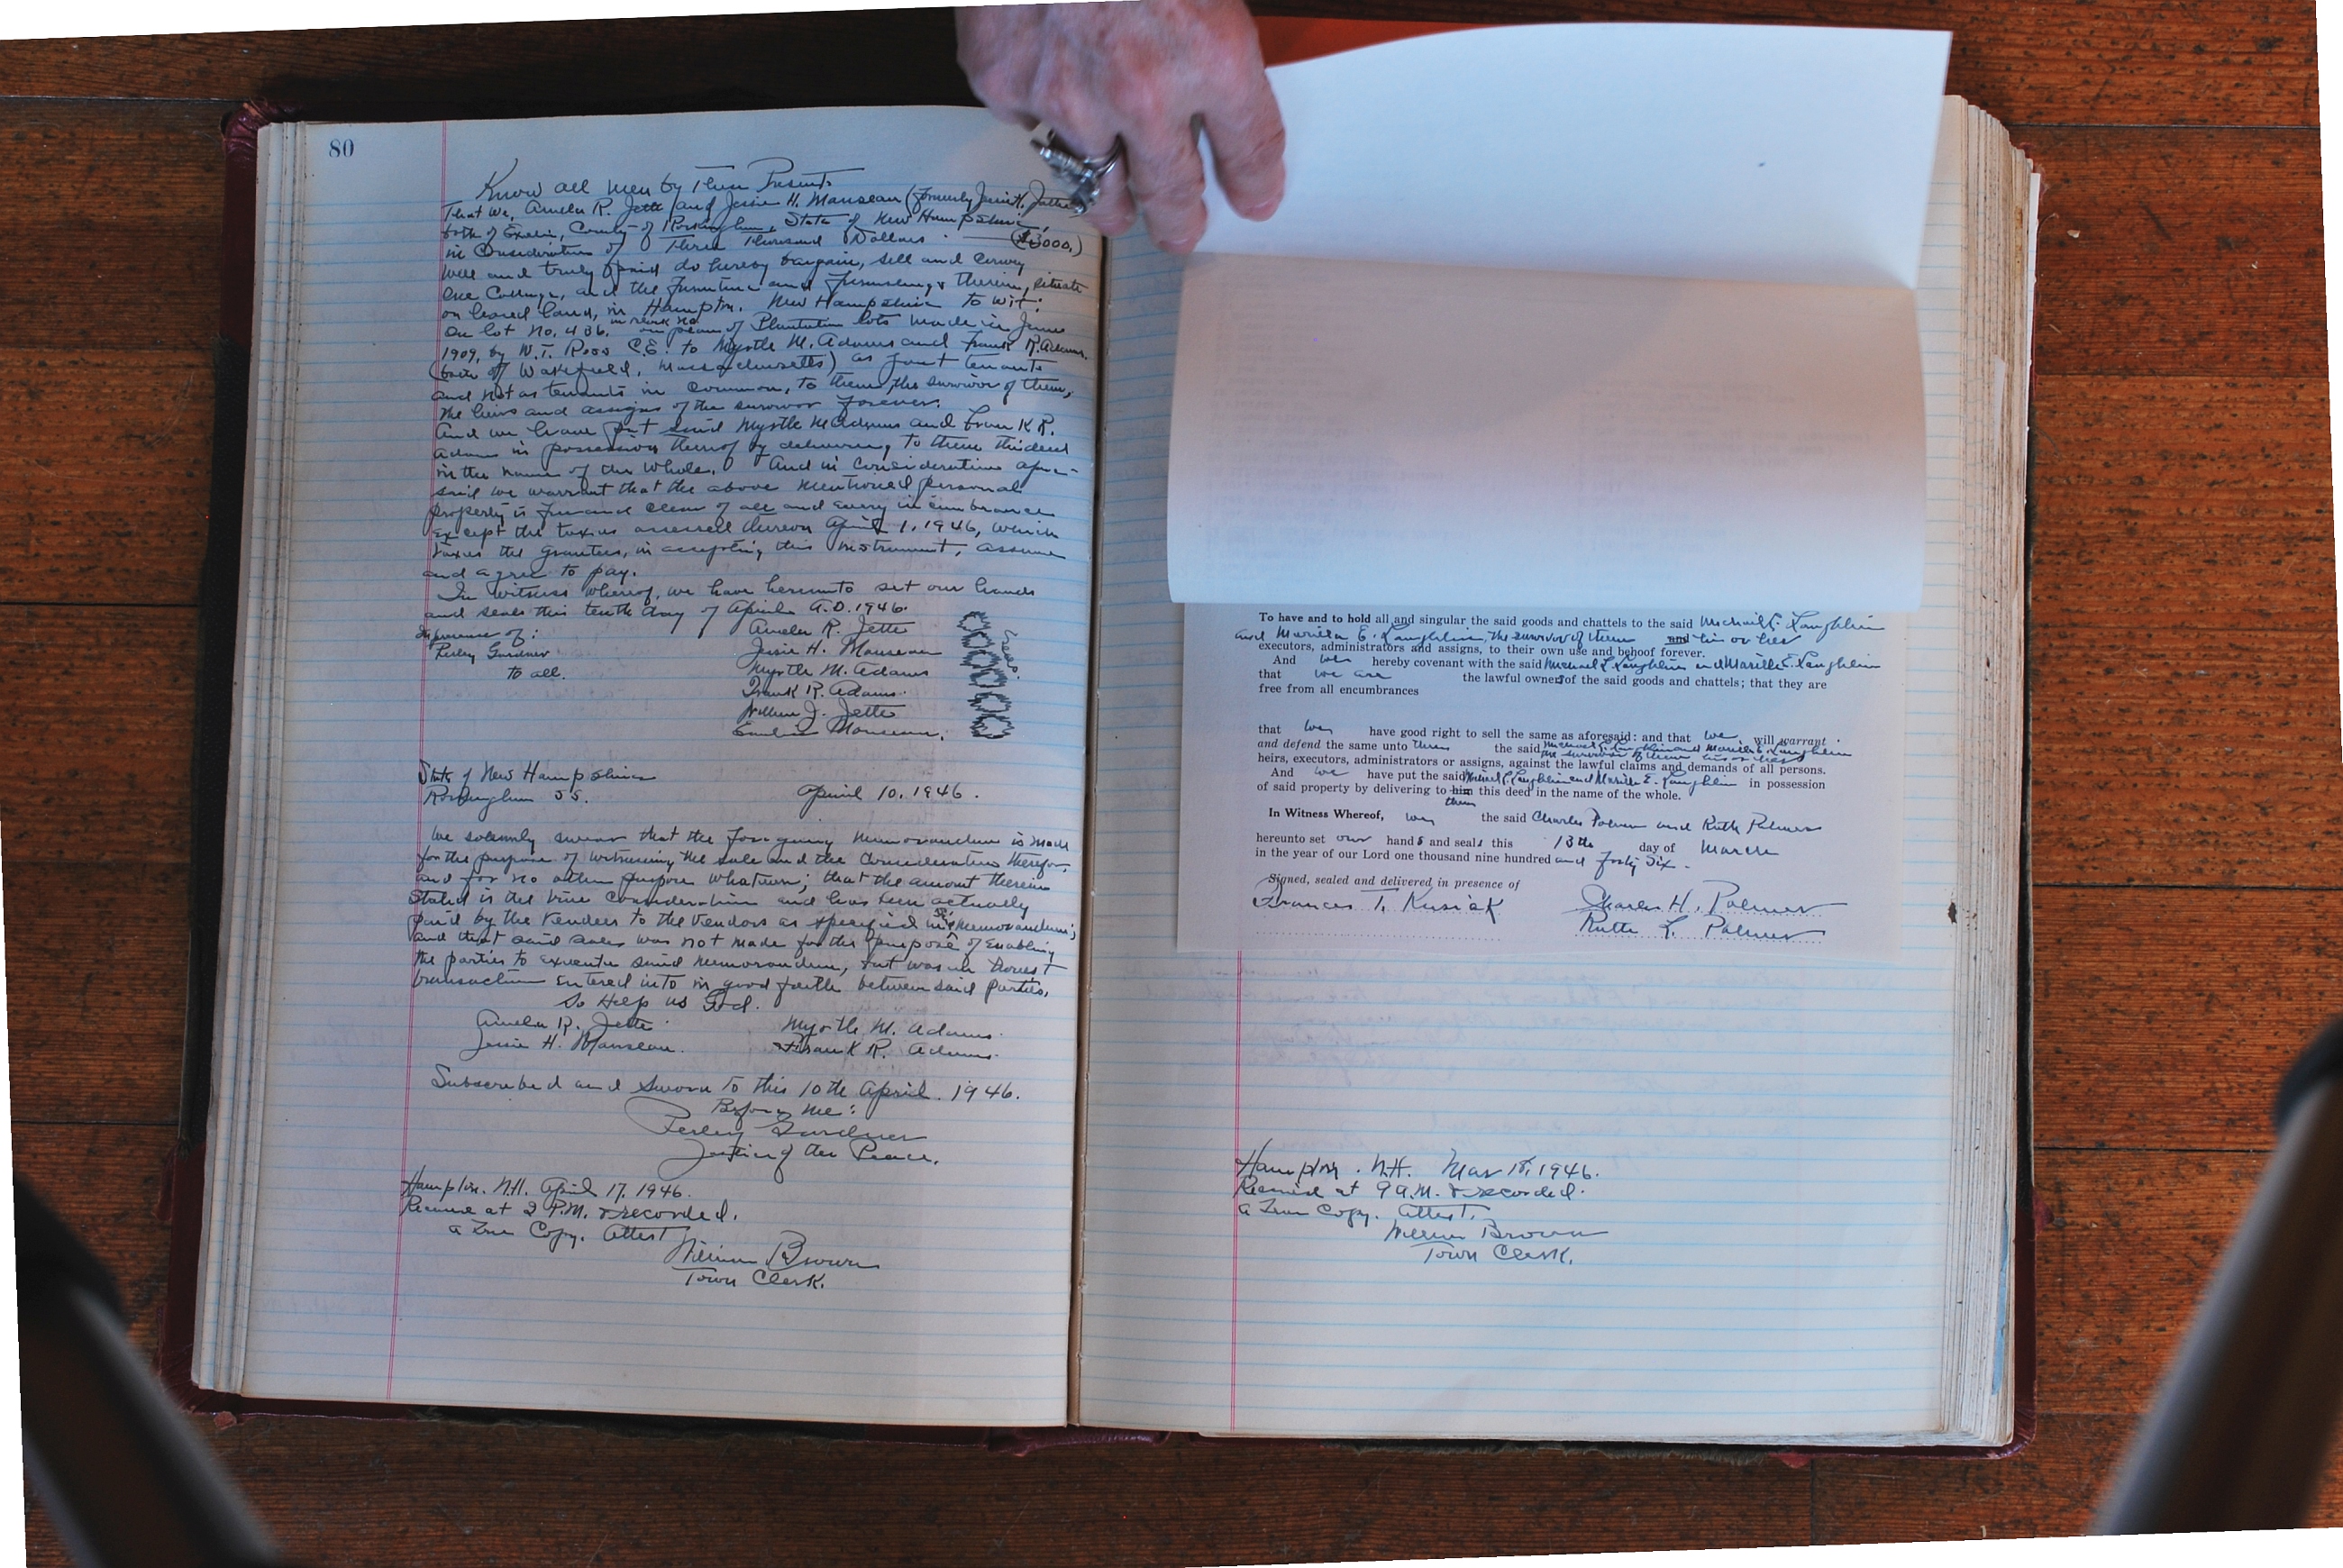 80
Know all men by These Presents
That we, Amelia R. Jette and Jessie H. Manseau (formerly Jessie H. Jette)
both of Exeter, County of Rockingham, State of New Hampshire,
in Consideration of Three Thousand Dollars ($3000.)
well and truly paid do hereby bargain, sell and convey
One Cottage, and the furniture and furnishings therein, situate
on leased land, in Hampton. New Hampshire to wit:
On lot No. 486. on plan of Plantation lots made in June
1909, by W.T. Ross C.E. to Myrtle M. Adams and Frank R. Adams.
(both of Wakefield, Massachusetts) as joint tenants
and not as tenants in common, to them, the survivor of them,
the heirs and assigns of the survivor forever.
And we have put said Myrtle M Adams and Frank R.
Adams in possession thereof by delivering to them this deed
in the name of the whole. And in consideration afore-
said we warrant that the above mentioned personal
property is free and clear of all and every incumbrance
Except the taxes assessed thereon April 1, 1946, which
taxes the grantees, in accepting this instrument, assume
and agree to pay.
In witness whereof, we have hereunto set our hands
and seals this tenth day of April A.D. 1946.
In presence of:
Perley Gardner
to all.
Amelia R. Jette
Jessie H. Manseau
Myrtle M. Adams
Frank R. Adams.
William J. Jette
Manseau.
Seal
State of New Hampshire
Rockingham SS. April 10. 1946.
We solemnly swear that the foregoing memorandum is made
for the purpose of witnessing the sale and the consideration therefor,
and for no other purpose whatever; that the amount therein
stated is the true consideration and has been actually
paid by the vendees to the vendors as specified in sd memorandum;
and that said sale was not made for the purpose of enabling
the parties to execute said memorandum, but was an honest
transaction entered into in good faith between said parties.
So Help us God.
Amelia R. Jette Myrtle M. Adams.
Jessie H. Manseau. Frank R. Adams.
Subscribed and sworn to this 10th April. 1946.
Before me:
Perley Gardner
Justice of the Peace.
Hampton. N.H. April 17, 1946.
Received at 2 P.M. & recorded.
a True Copy. Attest
William Brown
Town Clerk.
To have and to hold all and singular the said goods and chattels to the said Michael L. Laughlin
and Mariella E. Laughlin, the survivor of them and his or her
executors, administrators and assigns, to their own use and behoof forever.
And we hereby covenant with the said Michael L. Laughlin and Mariella E. Laughlin
that we are the lawful owners of the said goods and chattels; that they are
free from all encumbrances
that we have good right to sell the same as aforesaid: and that we will warrant
and defend the same unto them the said Michael L. Laughlin and Mariella E. Laughlin
the survivor of them his or her
heirs, executors, administrators or assigns, against the lawful claims and demands of all persons.
And we have put the said Michael L. Laughlin and Mariella E. Laughlin in possession
of said property by delivering to him this deed in the name of the whole.
them
In Witness Whereof, we the said Charles Palmer and Ruth Palmer
hereunto set our hands and seals this 13th day of March
in the year of our Lord one thousand nine hundred and forty six.
Signed, sealed and delivered in presence of
Frances T. Kusiak Charles H. Palmer
Ruth L. Palmer
Hampton. N.H. Mar 18, 1946.
Received at 9 A.M. & recorded.
a True Copy. Attest.
William Brown
Town Clerk.